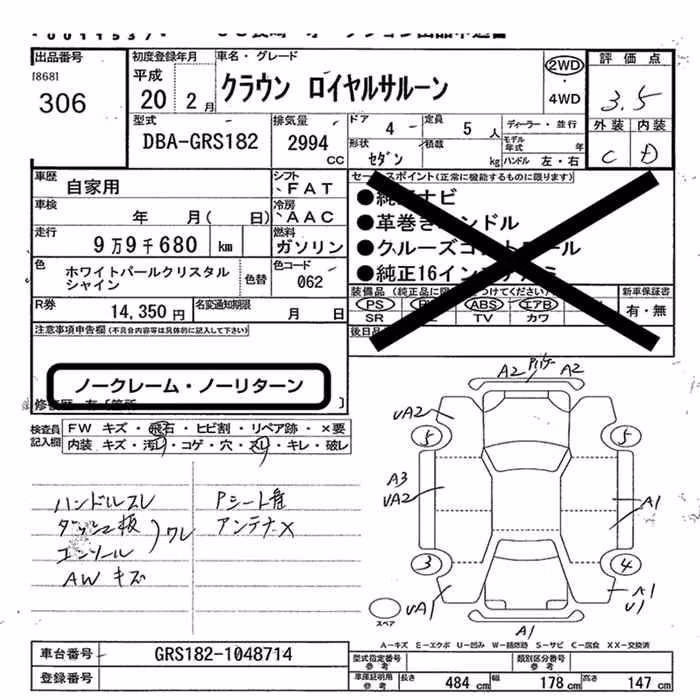 出品番号 初度登録年月 車名・グレード 評価点
[868]
306
平成 20 2月
クラウン ロイヤルサルーン
2WD
・
4WD
3.5
型式 排気量 ドア 4 定員 5人 ディーラー・並行 外装 内装
DBA-GRS182 2994 CC
形状 セダン 積載 kg モデル年式 年 ハンドル 左・右
C D
車歴 自家用 シフト FAT
セールスポイント(正常に機能するものに限ります)
車検 年 月( 日) 冷房 AAC
●純正ナビ
●革巻きハンドル
走行 9万9千680 km 燃料 ガソリン
●クルーズコントロール
●純正16インチアルミ
色 ホワイトパールクリスタルシャイン 色替 色コード 062
装備品 (純正品に つけてください) 新車保証書
PS ABS エアB 有・無
SR TV カワ
R券 14,350円 名変通知期限 月 日
後日品
注意事項申告欄(不具合内容等は具体的に記入して下さい)
ノークレーム・ノーリターン
修復歴
検査員記入欄 FW キズ・飛石・ヒビ割・リペア跡・×要
内装 キズ・汚レ・コゲ・穴・スレ・キレ・破レ
ハンドルスレ Pシート
ダッシュ板 アンテナX
ワレ
AW キズ
A2 A2
UA2
5 5
A3
UA2 A1
3 4
UA1 A1
U1
スペア
A1
A-キズ E-エクボ U-凹み W-補修跡 S-サビ C-腐食 XX-交換済
車台番号 GRS182-1048714
型式指定番号 参考 類別区分番号 参考
登録番号
車庫証明用 参考 長さ 484cm 幅 178cm 高さ 147cm